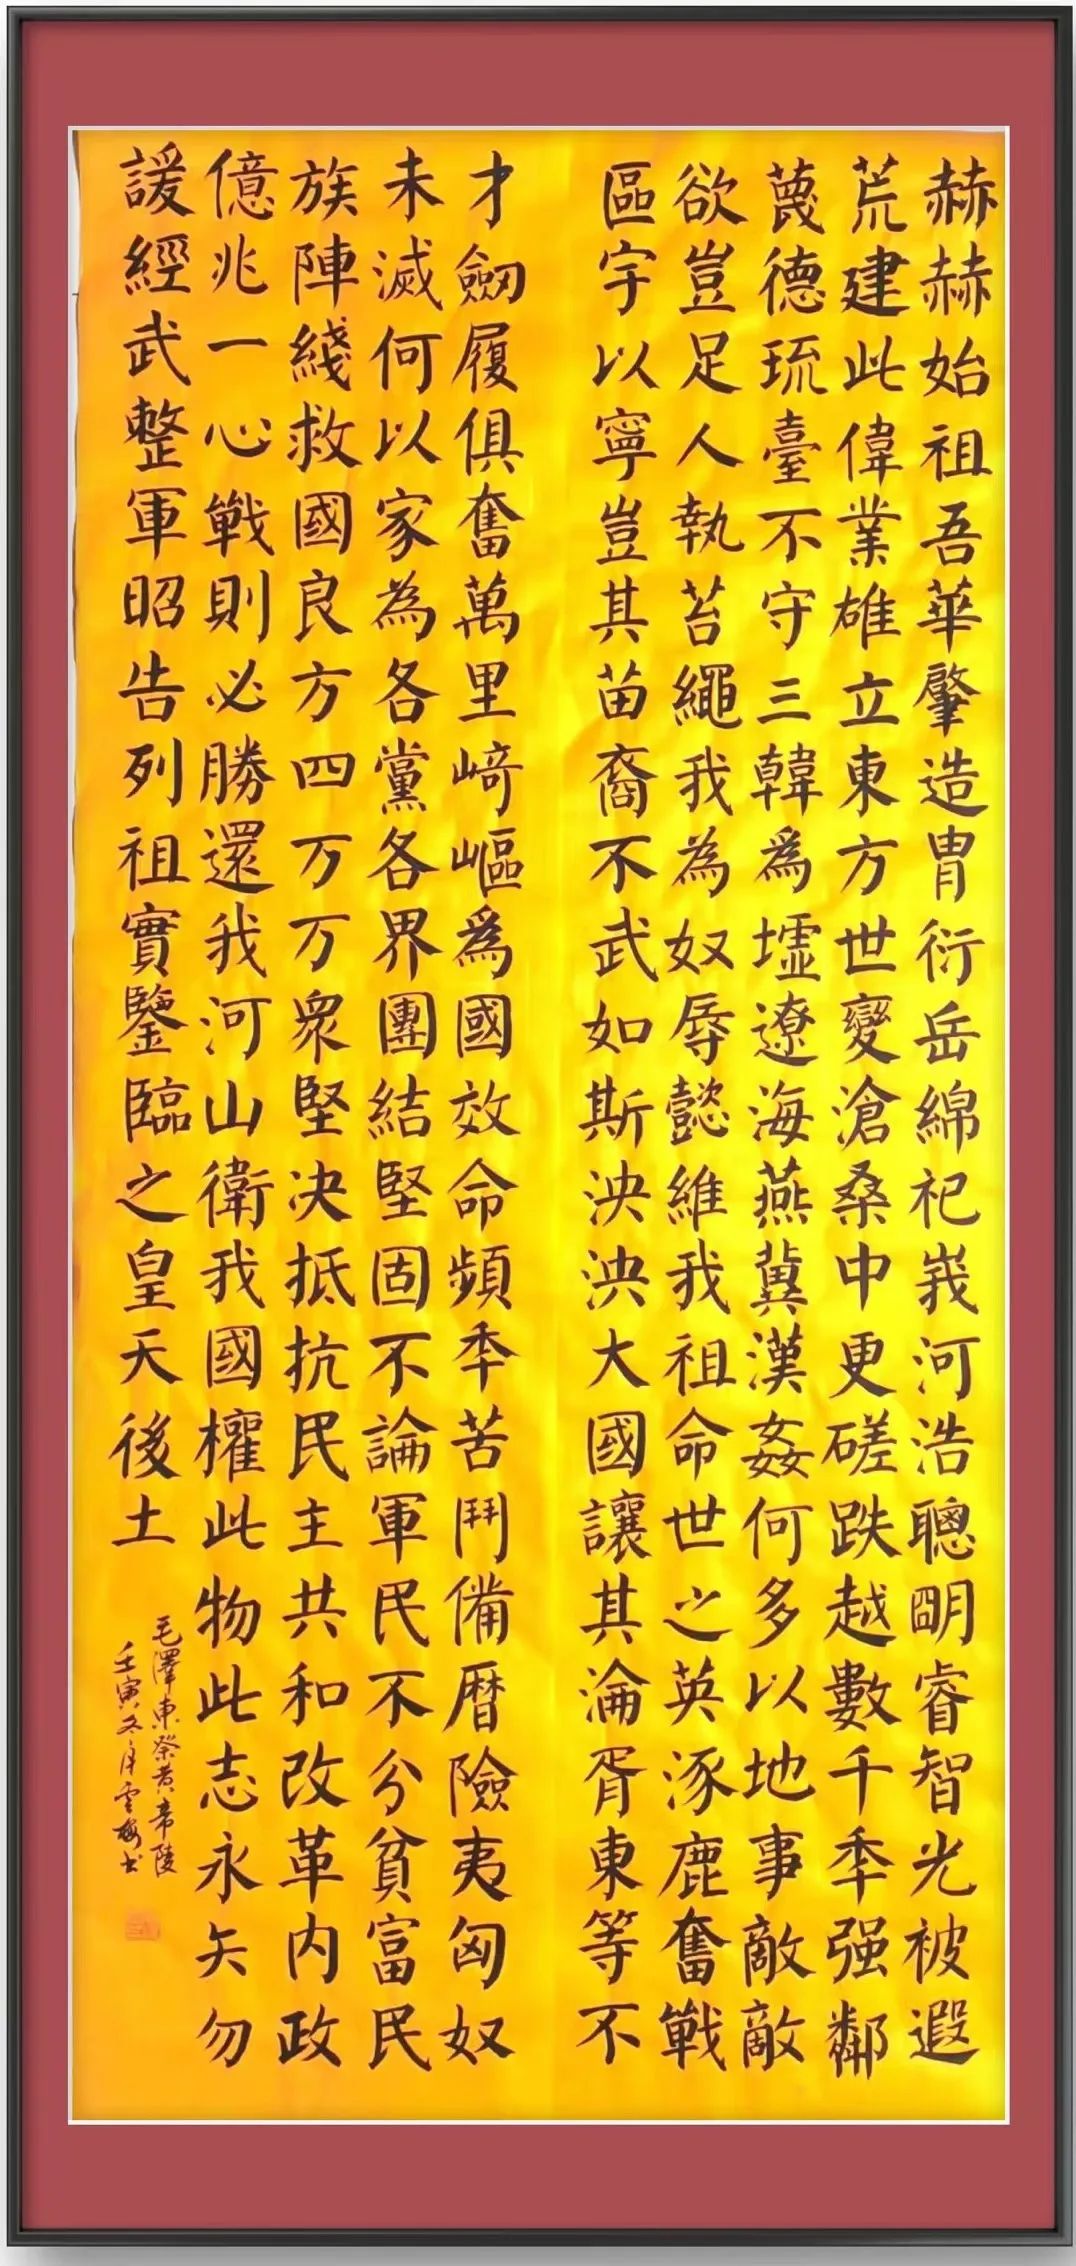 赫赫始祖吾華肇造冑衍岳綿祀峩河浩聰朙睿智光被遐
荒建此偉業雄立東方世變滄桑中更磋跌越數千秊强鄰
蔑德琉臺不守三韓為墟遼海燕冀漢姦何多以地事敵敵
欲豈足人執苔繩我為奴辱懿維我祖命世之英涿鹿奮戰
區宇以寧豈其苗裔不武如斯泱泱大國讓其淪胥東等不
才劒履俱奮萬里崎嶇爲國效命頻秊苦鬥備曆險夷匈奴
未滅何以家為各黨各界團結堅固不論軍民不分貧富民
族陣綫救國良方四万万眾堅决抵抗民主共和改革内政
億兆一心戰則必勝還我河山衛我國權此物此志永矢勿
諼經武整軍昭告列祖實鑒臨之皇天後土
毛澤東祭黃帝陵
壬寅冬月雲梅書